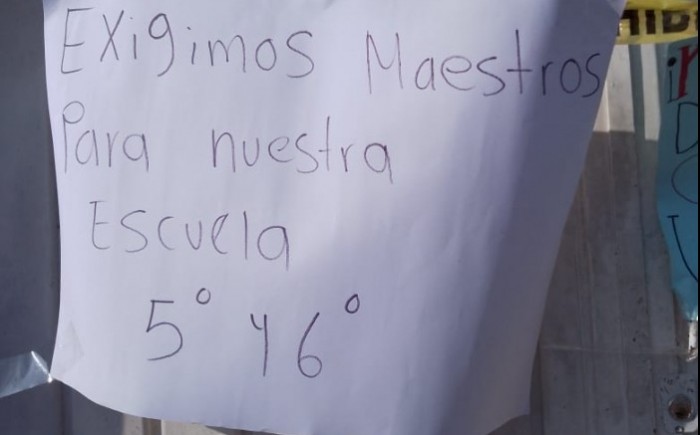 Exigimos Maestros
Para nuestra
Escuela
5° y 6°